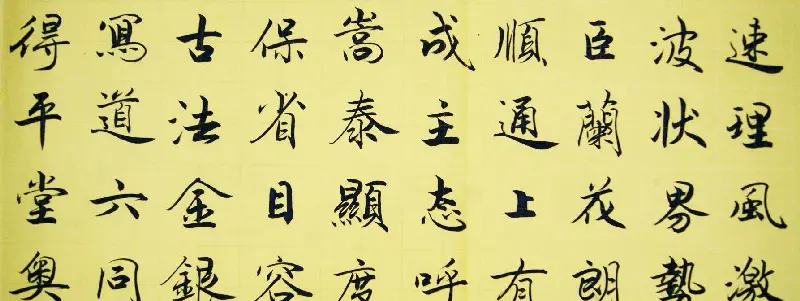 速理風激
波状界勢
臣蘭花朗
順通上有
成主态呼
嵩泰顯度
保省目容
古法金銀
寫道六同
得平堂奥